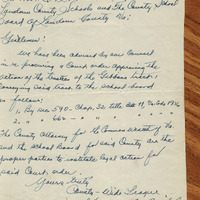 Loudoun County Schools and The County School
Board of Loudoun County Va:
Gentlemen:
We have been advised by our Counsel
in re procuring a Court order approving the
action of the trustees of the
conveying said land to the school board
as follows:
1. By sec 590 - Chap. 32 title Va. Code 1936
2. " 662 - " " " "
The County Attorney for the Common wealth of Va.
and the School Board for said County are the
proper parties to institute legal action for
said Court order.
Yours truly
County-Wide League